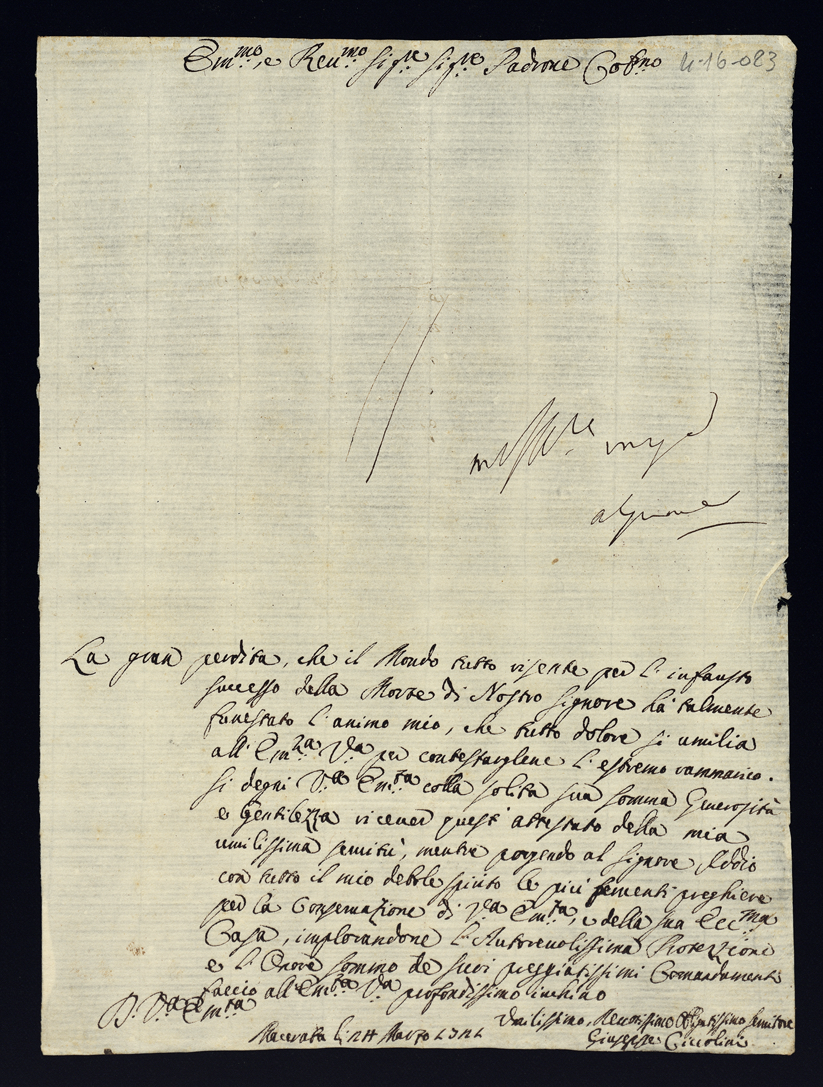 Em.mo, e Reu.mo Sig.re Sig.re Padrone Co̅l.mo 4-16-083
La gran perdita, che il Mondo tutto risente per l'infausto
successo della Morte di Nostro Signore hà talmente
funestato l'animo mio, che tutto dolore si umilia
all'Em.za V.ra per contestarglene l'estremo rammarico.
Si degni V.ra Em.za colla solita sua somma Generosità
e Gentilezza riceuer quest'attestato della mia
umilissima seruitù, mentre porgendo al Signore Iddio
con tutto il mio debole spirito le più feruenti preghiere
per la Conseruazione di V.ra Em.za, e della sua Ecc.ma
Casa, implorandone l'Autoreuolissima Protezzione
e l'Onore sommo de suoi preggiatissimi Comandamenti
faccio all'Em.za V.ra profondissimo inchino
D. V.ra Em.za
Umilissimo, Deuotissimo Obligatissimo Seruitore
Macerata li 24 Marzo 1721 Giuseppe Ciccolini